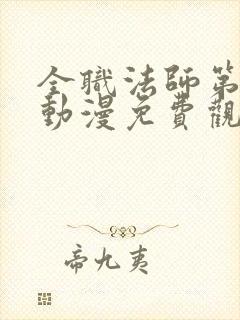 全職法師第
動漫免費觀
帝九夷